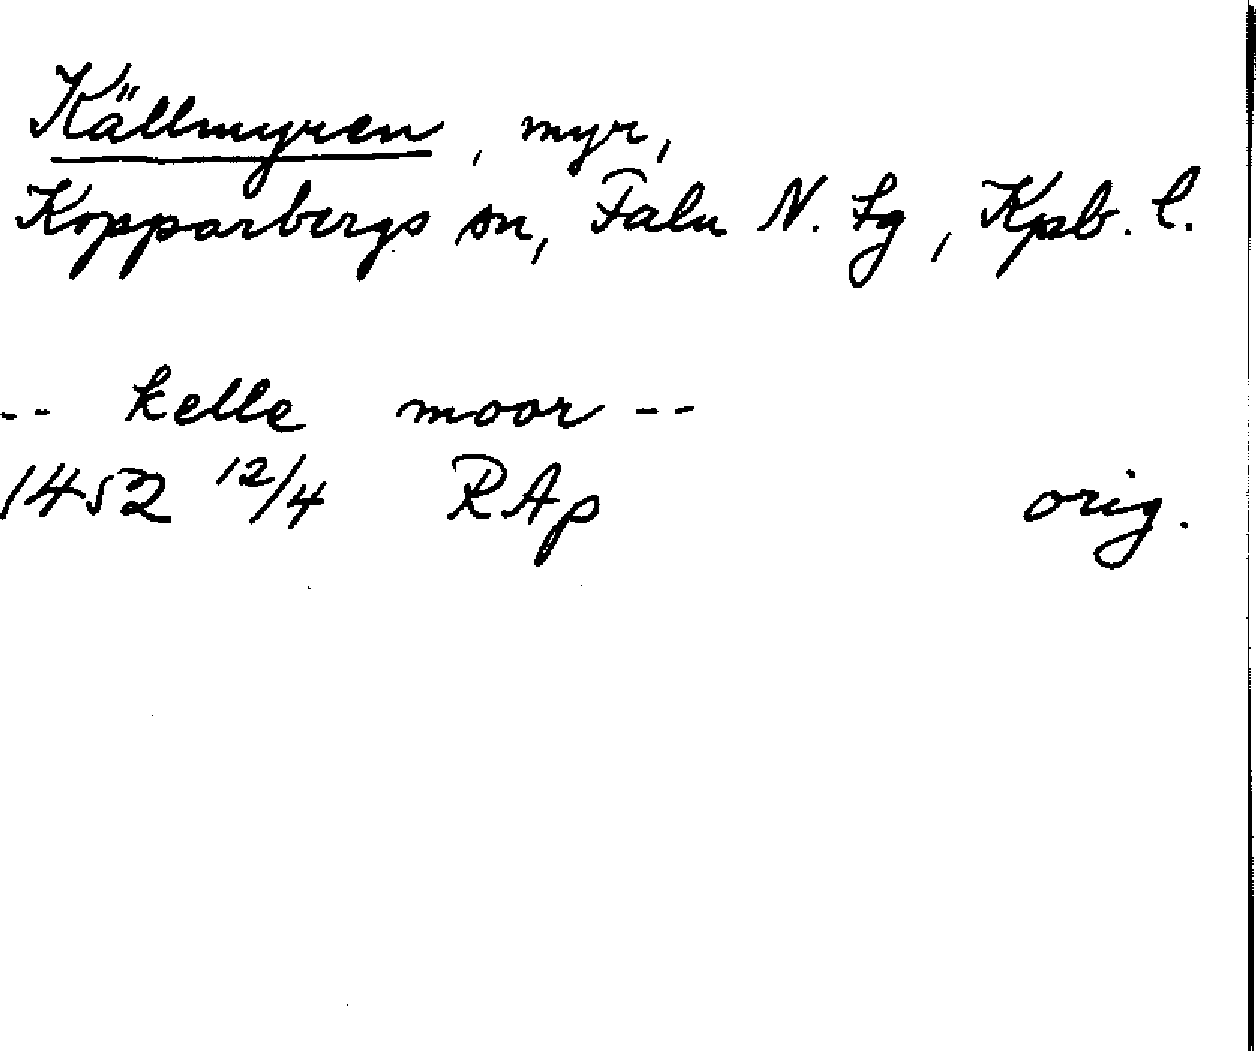 Källmyren, myr,
Kopparbergs sn, Falu N. tg, Kpb. l.
-- kelle moor --
1452 12/4 RAp orig.